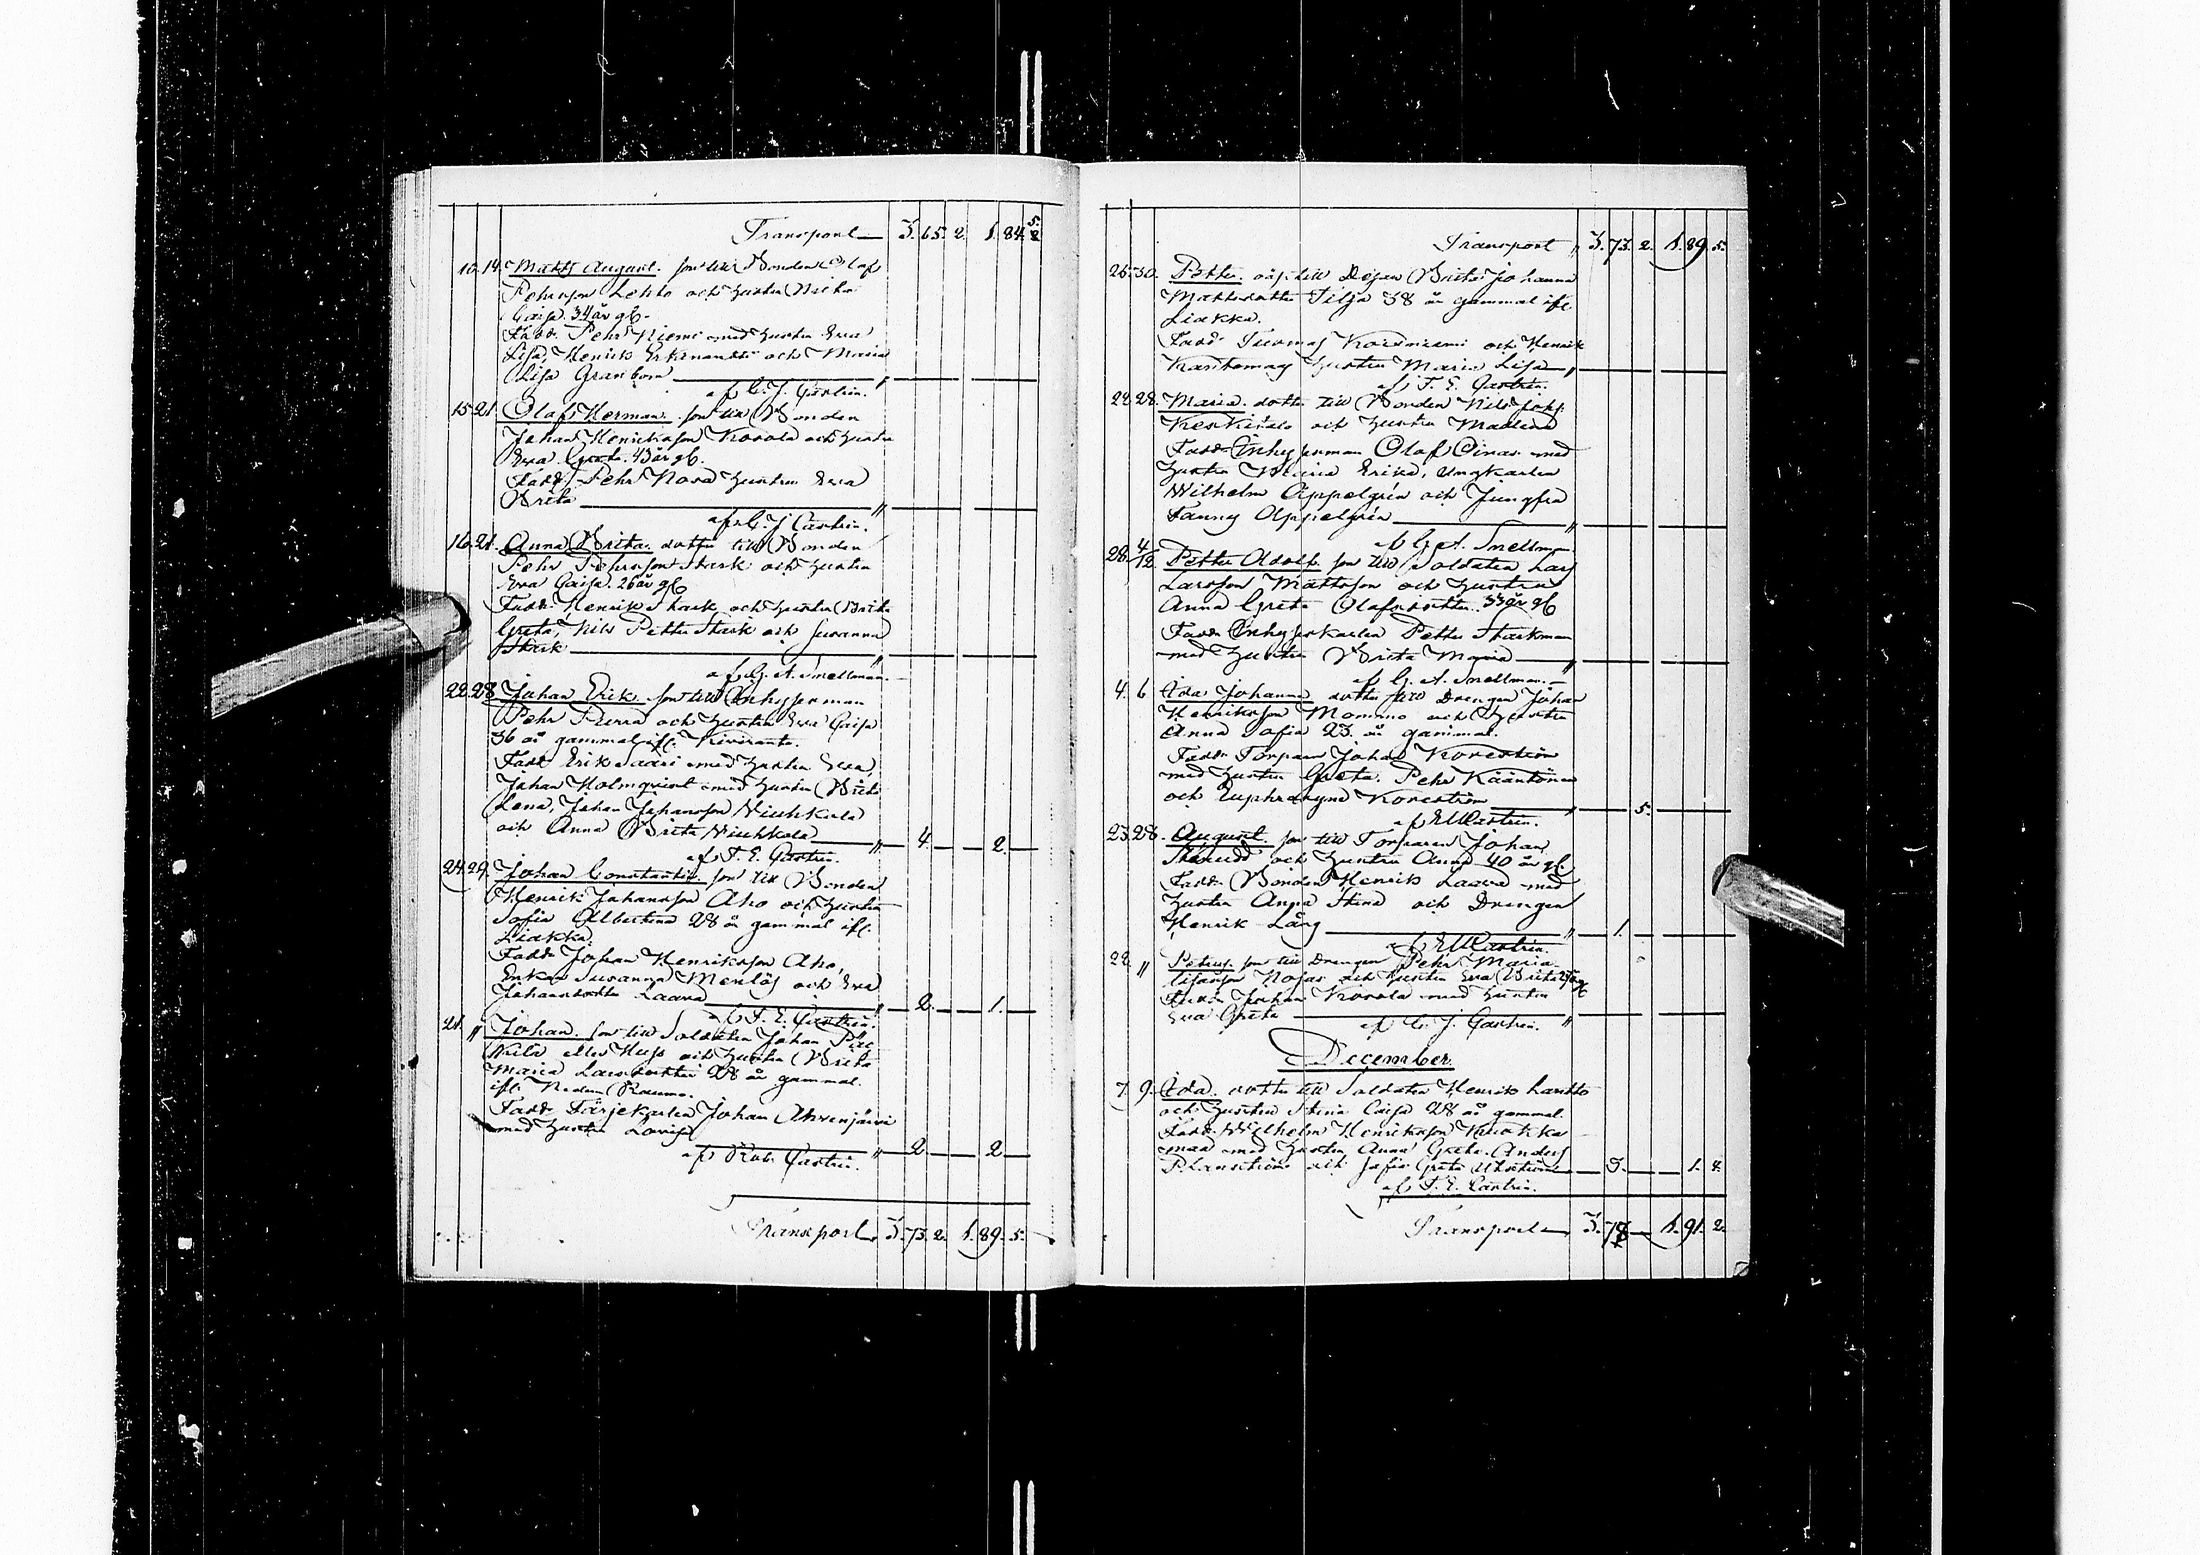 Transport 3. 65. 2. 1. 84. 5.
10. 14. Matts August. son till Bonden Olof
Pehrsson Lehto och hustru Brita
Caisa. 34 år gl.
Fadd. Pehr Niemi med hustru Eva
Lisa, Henrik och Maria
Lisa Granbom
af C. J. Castrén.
15. 21. Olof Herman. son till Bonden
Johan Henriksson Korola och hustru
Eva Greta. 43 år gl.
Fadd. Pehr hustru Eva
Brita
af C. J. Castrén.
16. 21. Anna Brita. dotter till Bonden
Pehr Pehrsson Stark och hustru
Eva Caisa. 26 år gl.
Fadd. Henrik Stark och hustru Brita
Greta, Nils Petter Stark och Susanna
Stark
af G. A. Snellman.
22. 28. Johan Erik son till Inhyseman
Pehr och hustru Eva Caisa
36 år gammal ifr. Kiviranta.
Fadd. Erik Saari med hustru Eva,
Johan Holmqvist med hustru Brita
Lena, Johan Johansson
och Anna Brita 4. 2.
af F. E. Castrén.
24. 29. Johan Constantin. son till Bonden
Henrik Johansson Aho och hustru
Sofia Albertina 28 år gammal ifr.
Liakka.
Fadd. Johan Henriksson Aho,
Enkan Susanna och Eva
Johansdotter Laava 2. 1.
af F. E. Castrén.
21. " Johan. son till Soldaten Johan
eller och hustru Brita
Maria Larsdotter 28 år gammal.
ifr. Nedan
Fadd. Färjekarlen Johan Ahvenjärvi
med hustru Lovisa 2. 2.
af Rob. Castrén.
Transport 3. 73. 2. 1. 89. 5.
Transport 3. 73. 2. 1. 89. 5.
26. 30. Petter. till Brita Johanna
Mattsdotter Tilja 38 år gammal ifr
Liakka.
Fadd. Tuomas och Henrik
hustru Maria Lisa
af F. E. Castrén.
22. 28. Maria. dotter till Bonden Nils Johs.
Keskitalo och hustru
Fadd. Inhyseman Olof Oinas med
hustru Maria Erika, Ungkarlen
Wilhelm Appelgrén och Jungfru
Fanny Appelgrén
af G. A. Snellman
28. 4/12. Petter Adolf. son till Soldaten Lars
Larsson Mattsson och hustru
Anna Greta Olofsdotter. 33 år gl
Fadd. Inhyseskarlen Petter Starkman
med hustru Brita Maria
af G. A. Snellman.
4. 6. Ida Johanna dotter till Drengen Johan
Henriksson Mommo och hustru
Anna Sofia 23. år gammal.
Fadd. Johan Korström
med hustru Greta. Pehr
och Euphrosyne 5.
af Castrén.
23. 28. August. son till Torparen Johan
och hustru Anna 40 år gl.
Fadd. Bonden Henrik Laava med
hustru Anna Stina och Drengen
Henrik Lång 1.
af Castrén.
28. " Petrus. son till Drengen Pehr Maria
och hustru Eva Brita
Fadd. Johan Korola med hustru
Eva Greta
af C. J. Castrén.
December.
7. 9. Ida. dotter till Soldaten Henrik
och hustru Stina Caisa 28 år gammal.
Fadd. Wilhelm Henriksson
med hustru Anna Greta. Anders
och Sofia Greta 5. 1.
af F. E. Castrén.
Transport 3. 78 1. 91. 2.